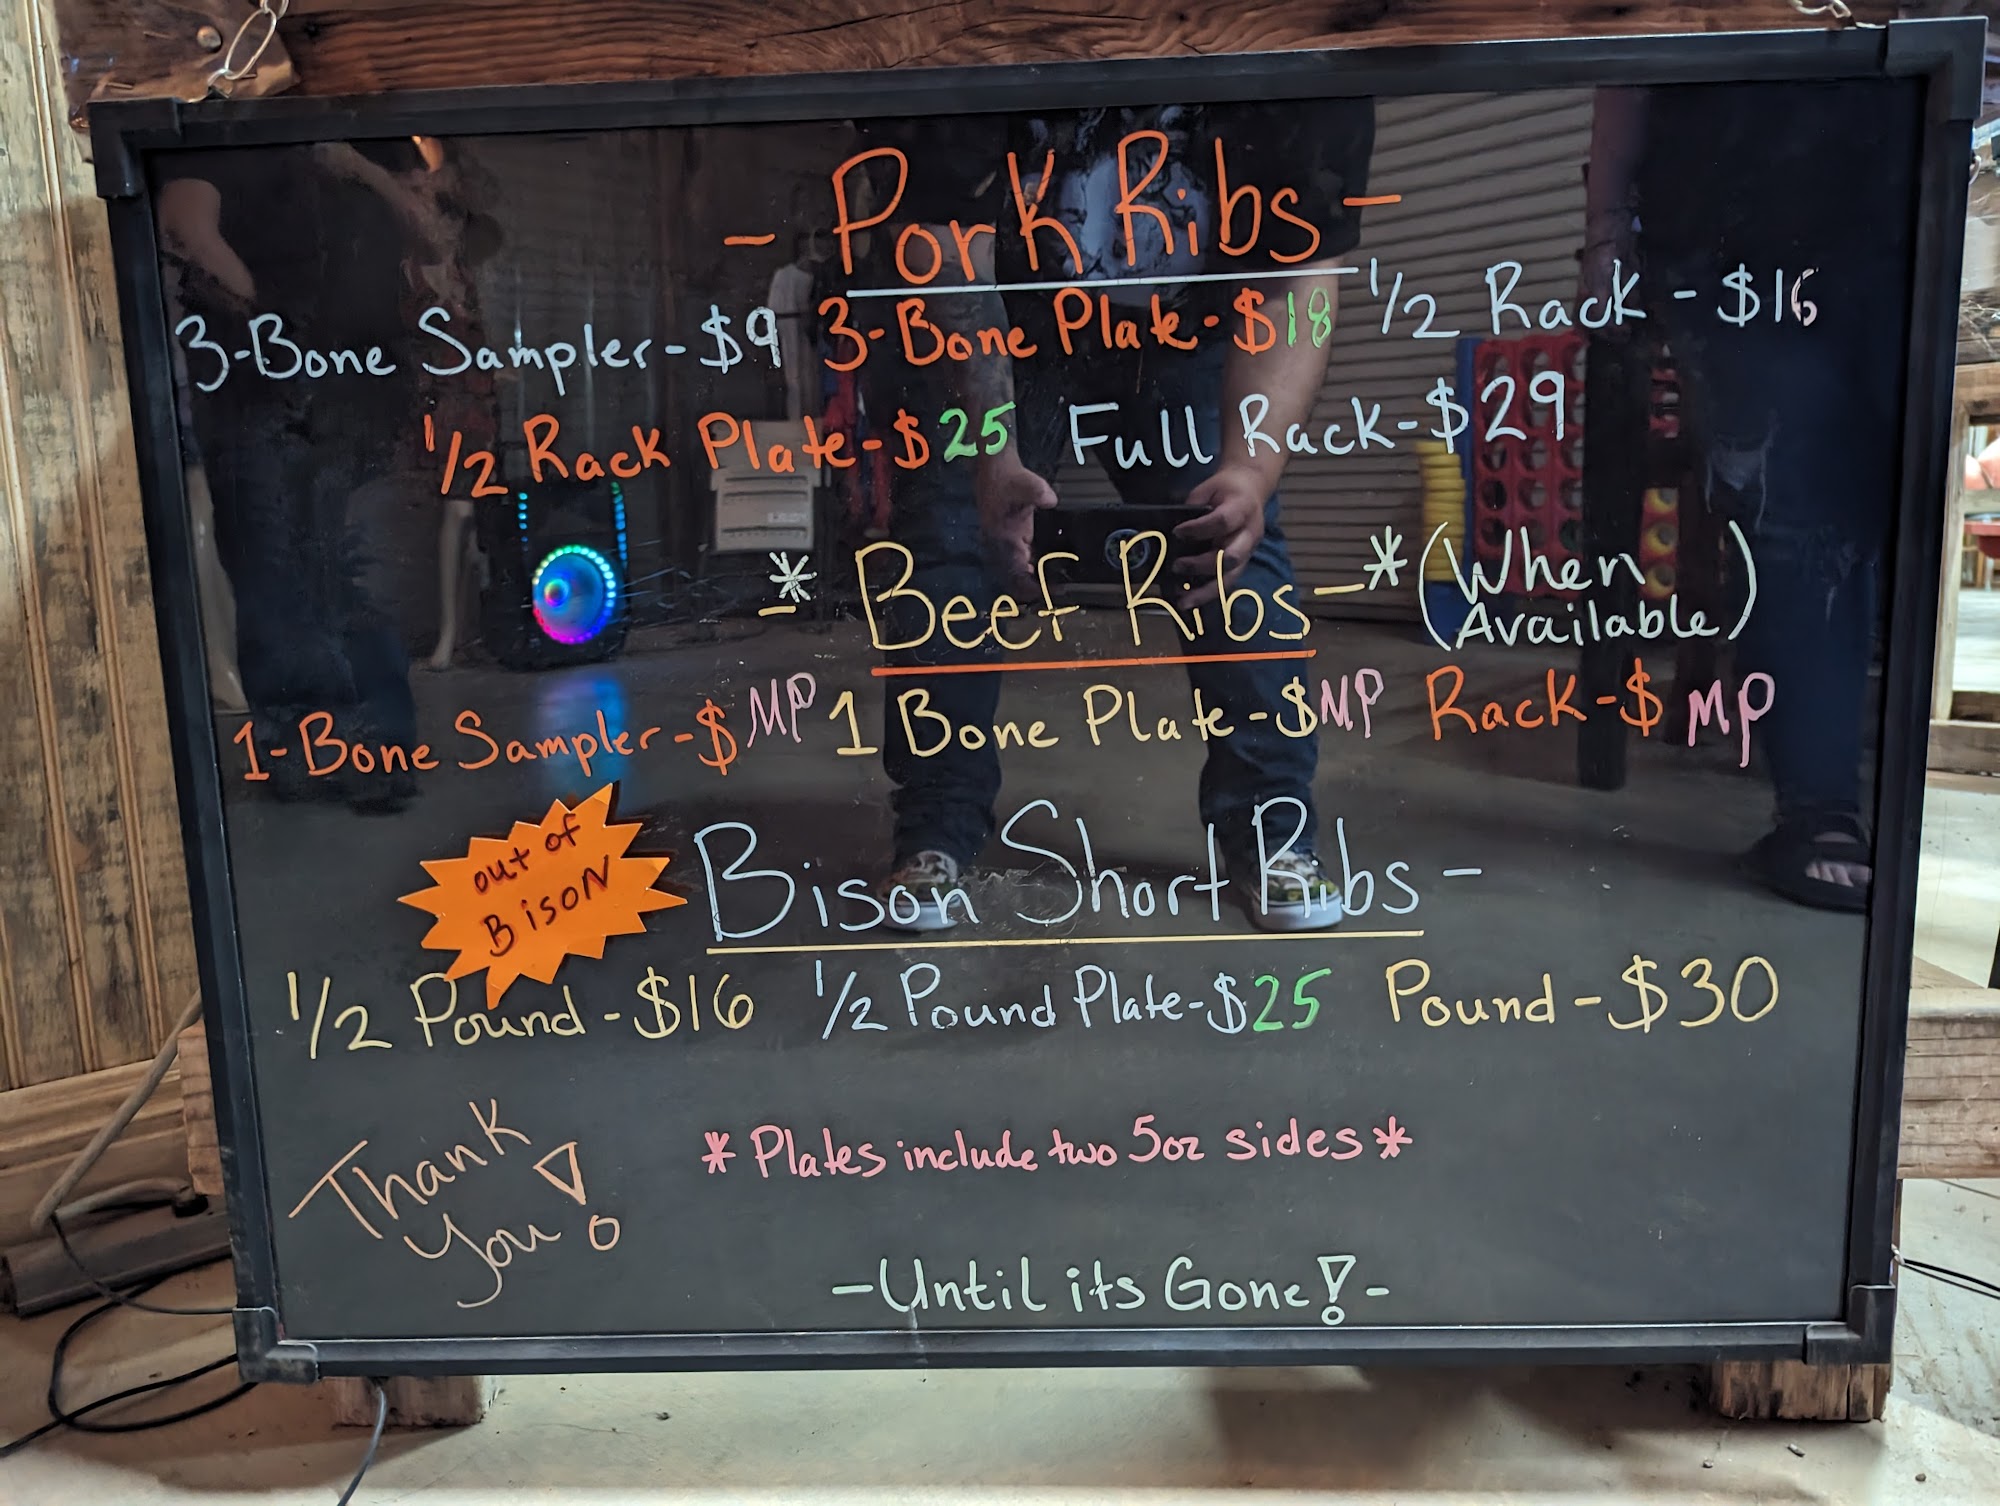 - Pork Ribs -
3-Bone Sampler - $9 3-Bone Plate - $18 1/2 Rack - $16
1/2 Rack Plate - $25 Full Rack - $29
-* Beef Ribs -* (When Available)
1-Bone Sampler - $MP 1 Bone Plate - $MP Rack - $MP
out of
BisoN
Bison Short Ribs -
1/2 Pound - $16 1/2 Pound Plate - $25 Pound - $30
*Plates include two 5oz sides*
Thank
You!
- Until its Gone! -